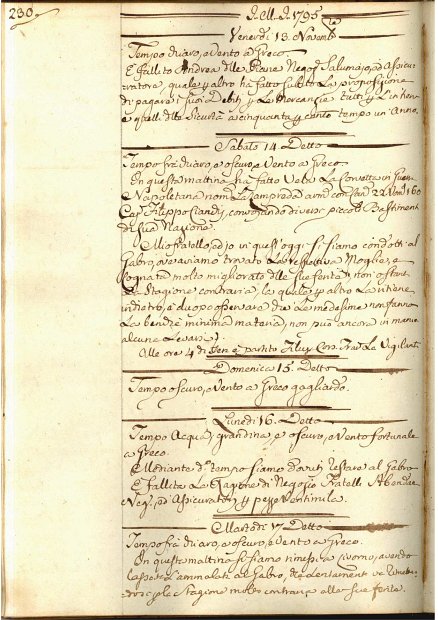 230.
A. M. D. 1795
Venerdì 13. Novemb.re
Tempo chiaro, e Vento a Greco
È fallito Andrea delle Piane Negoz.
quale p altro ha fatto subito La proposizione
di pagare i suoi Debiti p Le Mercanzie tutti p L'intiero
e quelli delle Sicurtà a cinquanta p cento tempo un Anno.
Sabato 14 Detto
Tempo frà chiaro, e oscuro, e Vento a Greco
In questa mattina ha fatto Vela La Corvetta
Napoletana nom.ta La Lampreda
Cap. Filippo convojando diversi piccoli Bastimenti
di sua Nazione.
Mio fratello, ed io in quest'oggi si siamo condotti al
Gabro, ove aviamo trovato La respettiva Moglie, e
Cognata molto migliorato delle sue ferite, non ostante
La Stagione contraria, la quale p altro La tiene
indietro, e duopo osservare che Le medesime non fanno
La benchè minima materia, non può ancora in maniera
alcuna Levarsi.
Alle ore 4 di è partito La Vigilanti
Domenica 15. Detto
Tempo oscuro, e Vento a Greco gagliardo.
Lunedì 16. Detto
Tempo Acqua, grandina, e oscuro, e Vento fortunale
a Greco.
Mediante d.o tempo siamo dovuti restare al Gabro
È fallita La Ragione di Negozio Fratelli
Neg., ed Assicuratori p pezze Ventimila.
Martedì 17 Detto
Tempo frà chiaro, e oscuro, e Vento a Greco.
In questa mattina si siamo rimessi a Livorno, avendo
L'ammalata al Gabro, che Lentamente va
La Stagione molto contraria alle sue ferite.